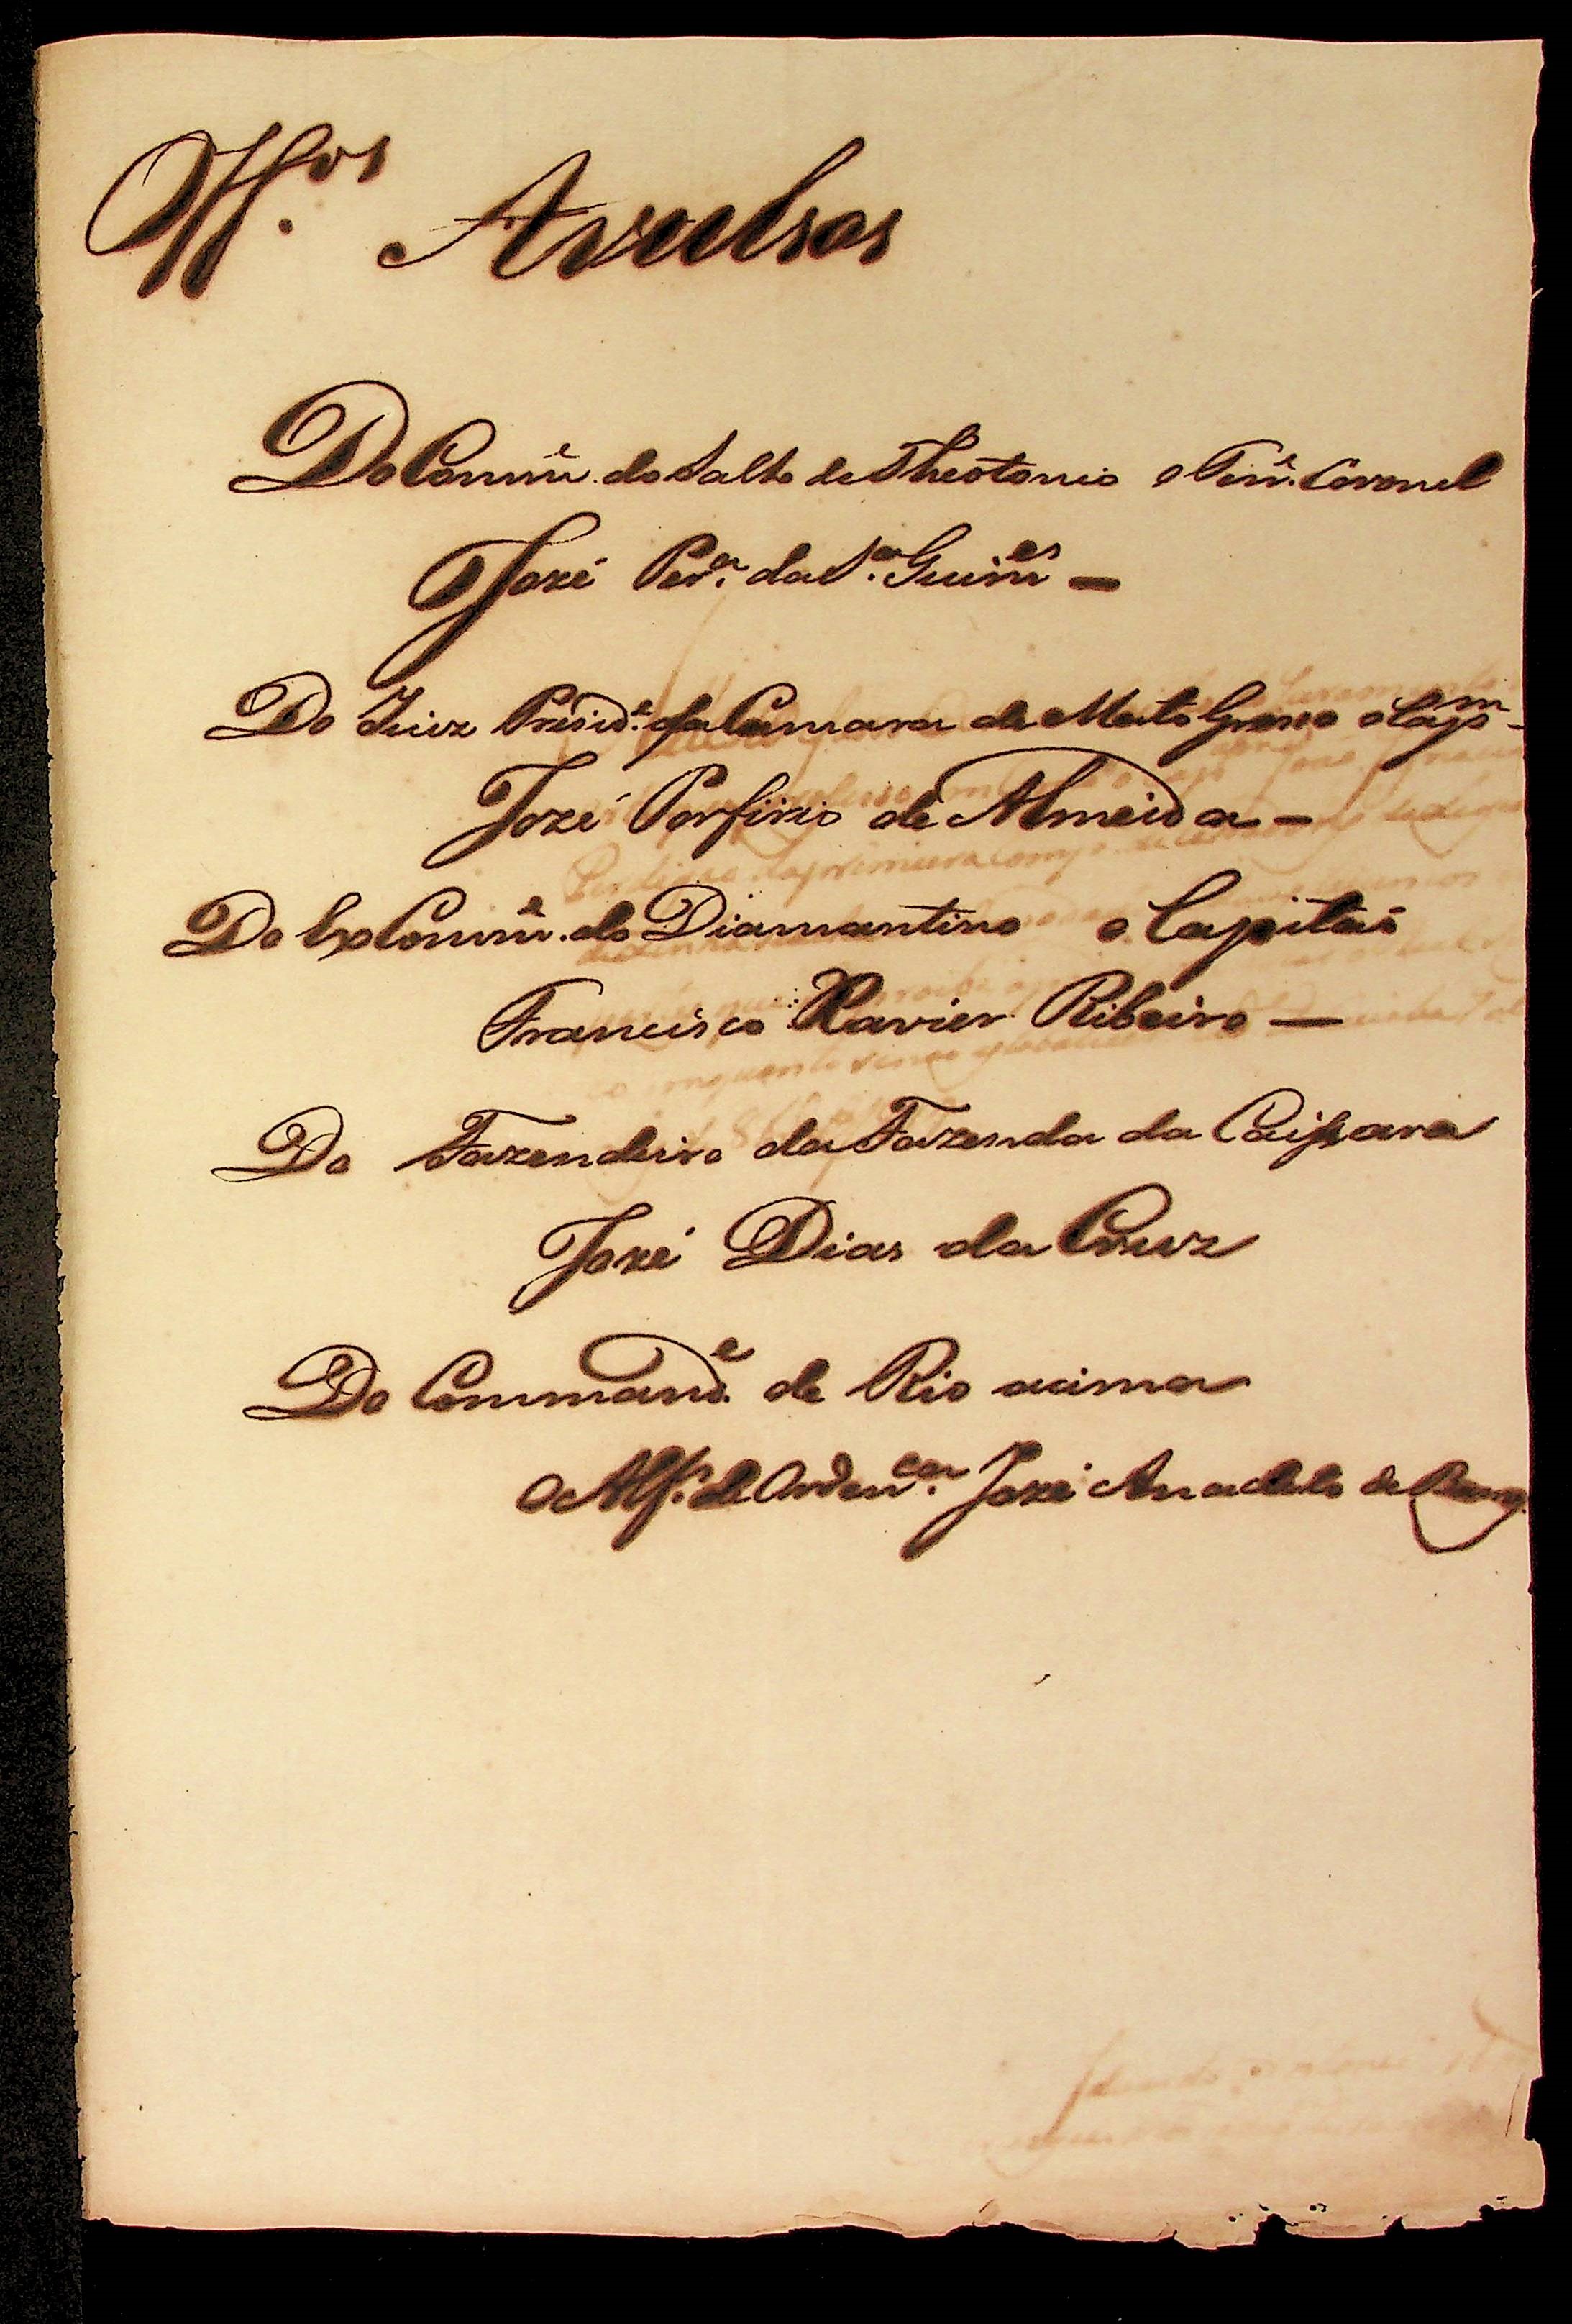 Off.os Avulsos
Do Comm.e do Salto de Theotonio o Ten.e Coronel
José Per.a da S.a Guim.es —
Do Juiz Presid.e da Camara de Mato Grosso o Cap.m
José Porfirio de Almeida —
Do Ex Comm.e do Diamantino o Capitaõ
Francisco Xavier Ribeiro —
Do Fazendeiro da Fazenda da Caissara
José Dias da Cruz
Do Command.e de Rio acima
o Alf.s de Orden.ças José Anacleto de